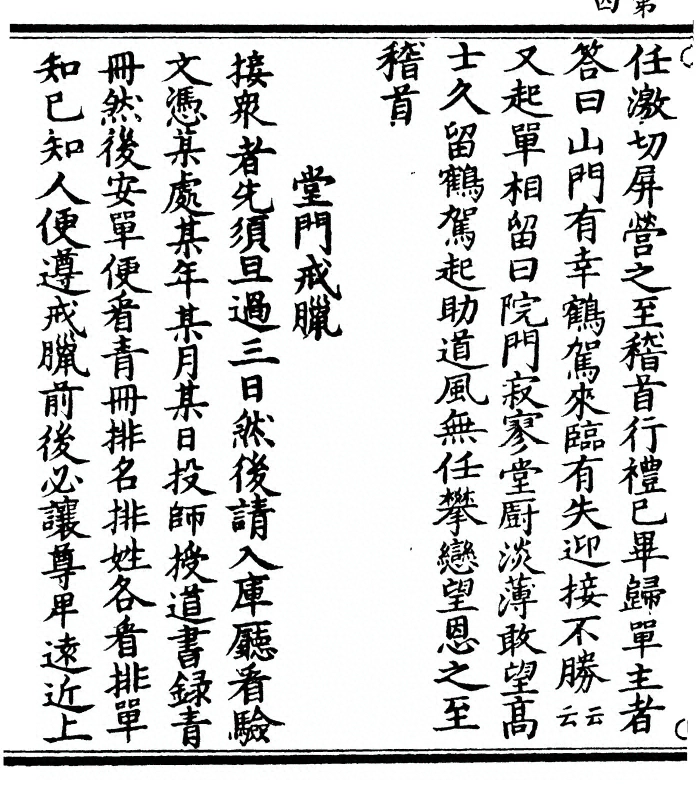 第四
任激切屏營之至稽首行禮已畢歸單主者
答曰山門有幸鶴駕來臨有失迎接不勝云云
又起單相留曰院門寂寥堂厨淡薄敢望高
士久留鶴駕起助道風無任攀戀望恩之至
稽首
堂門戒臘
接衆者先須旦過三日然後請入庫廳看驗
文憑某處某年某月某日投師授道書録青
冊然後安單便看青冊排名排姓各看排單
知已知人便遵戒臘前後必讓尊卑遠近上